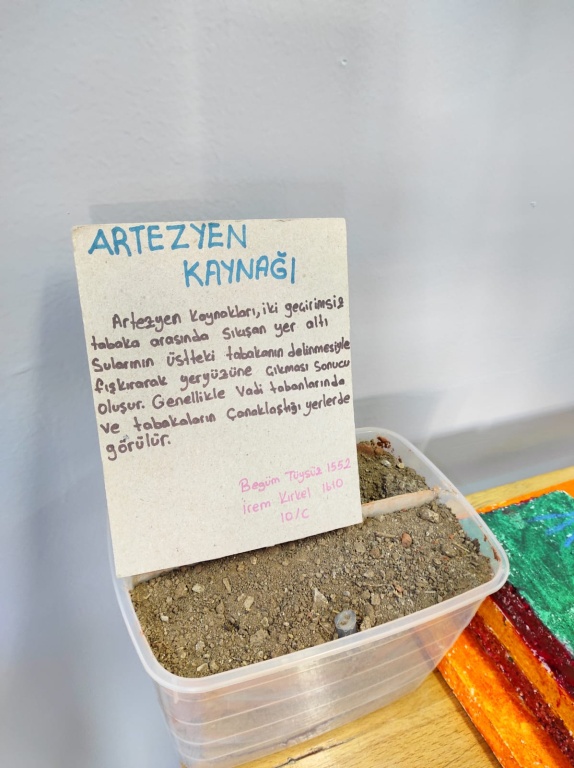 ARTEZYEN
KAYNAĞI
Artezyen kaynakları, iki geçirimsiz
tabaka arasında sıkışan yer altı
Sularının üstteki tabakanın delinmesiyle
fışkırarak yeryüzüne çıkması sonucu
oluşur. Genellikle vadi tabanlarında
ve tabakaların çanaklaştığı yerlerde
görülür.
Begüm Tüysüz 1552
İrem Kırkel 1610
10/C